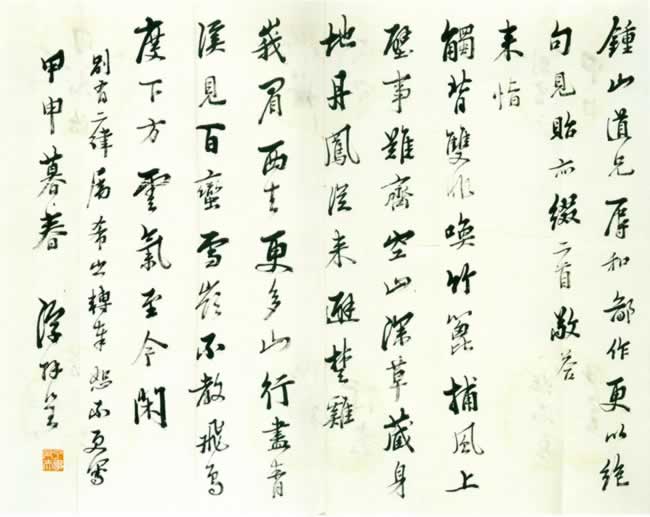 鍾山道兄辱和鄙作更以絕
句見貽亦綴二首敬答
来恉
觸背雙非喚竹篦捕風上
壁事難齊空山深草藏身
地丹鳳從来避楚雞
峩眉西去更多山行盡青
溪見百蠻雪嶺不教飛鳥
度下方雲氣至今閑
别有二律属希出轉奉恕不更寫
甲申暮春 浮拜